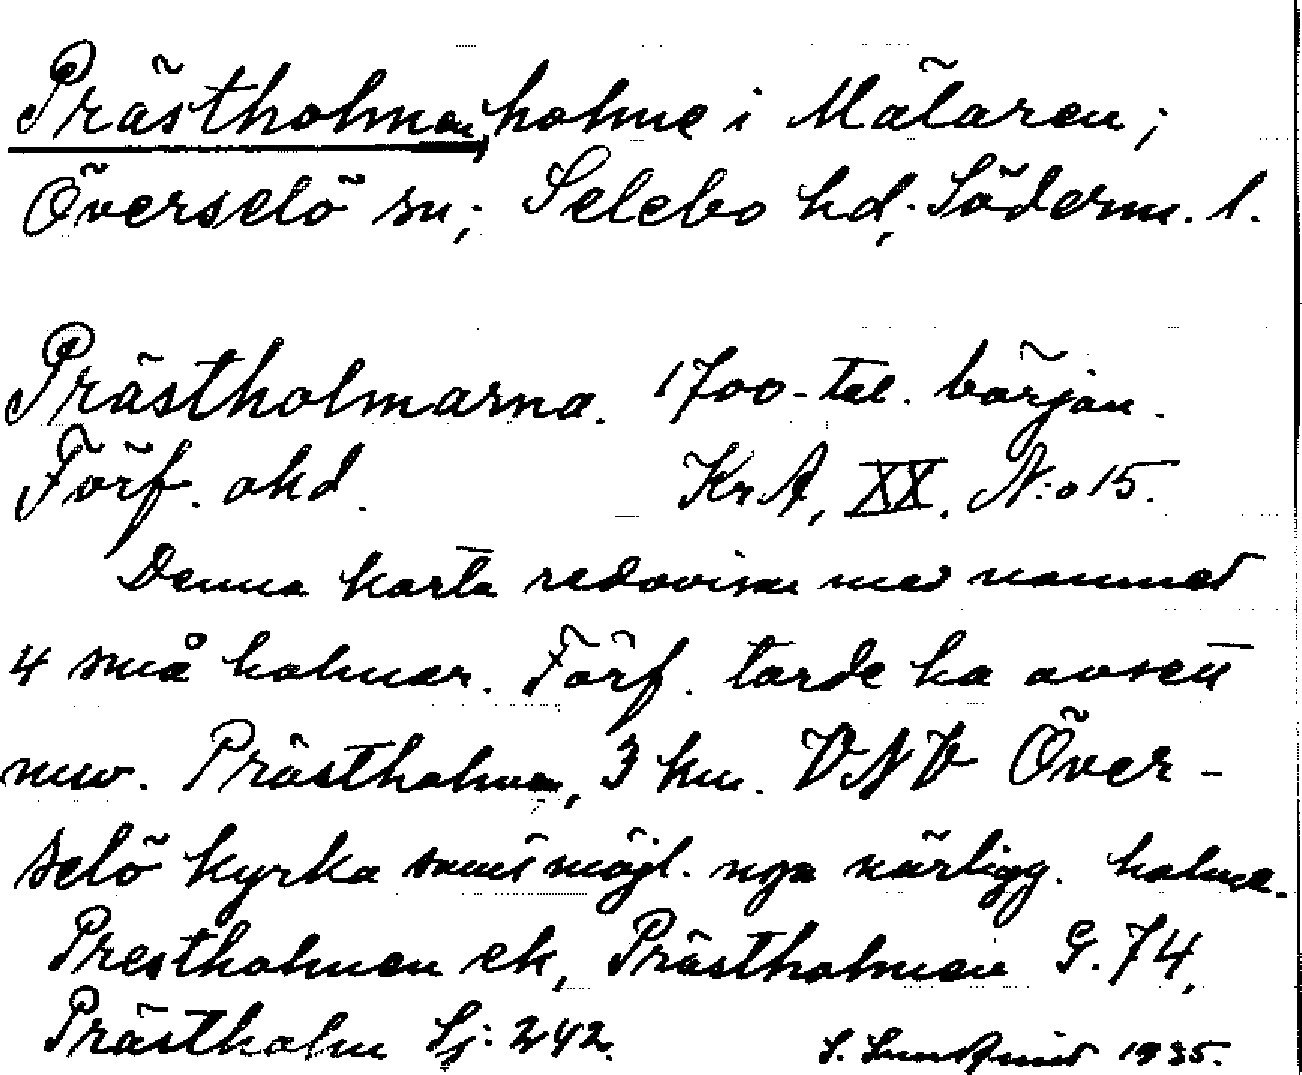 Prästholmen, holme i Mälaren;
Överselö sn; Selebo hd; Söderm. l.
Prästholmarna. 1700-tal. början.
Förf. okd. KrA, XX, N:o 15.
Denna karta redovisar med namnet
4 små holmar. Förf. torde ha avsett
nuv. Prästholmen, 3 km. VNV Över-
selö kyrka samt möjl. ngn närligg. holme.
Prestholmen ek, Prästholmen G. 74,
Prästholm Sj: 242.
1935.